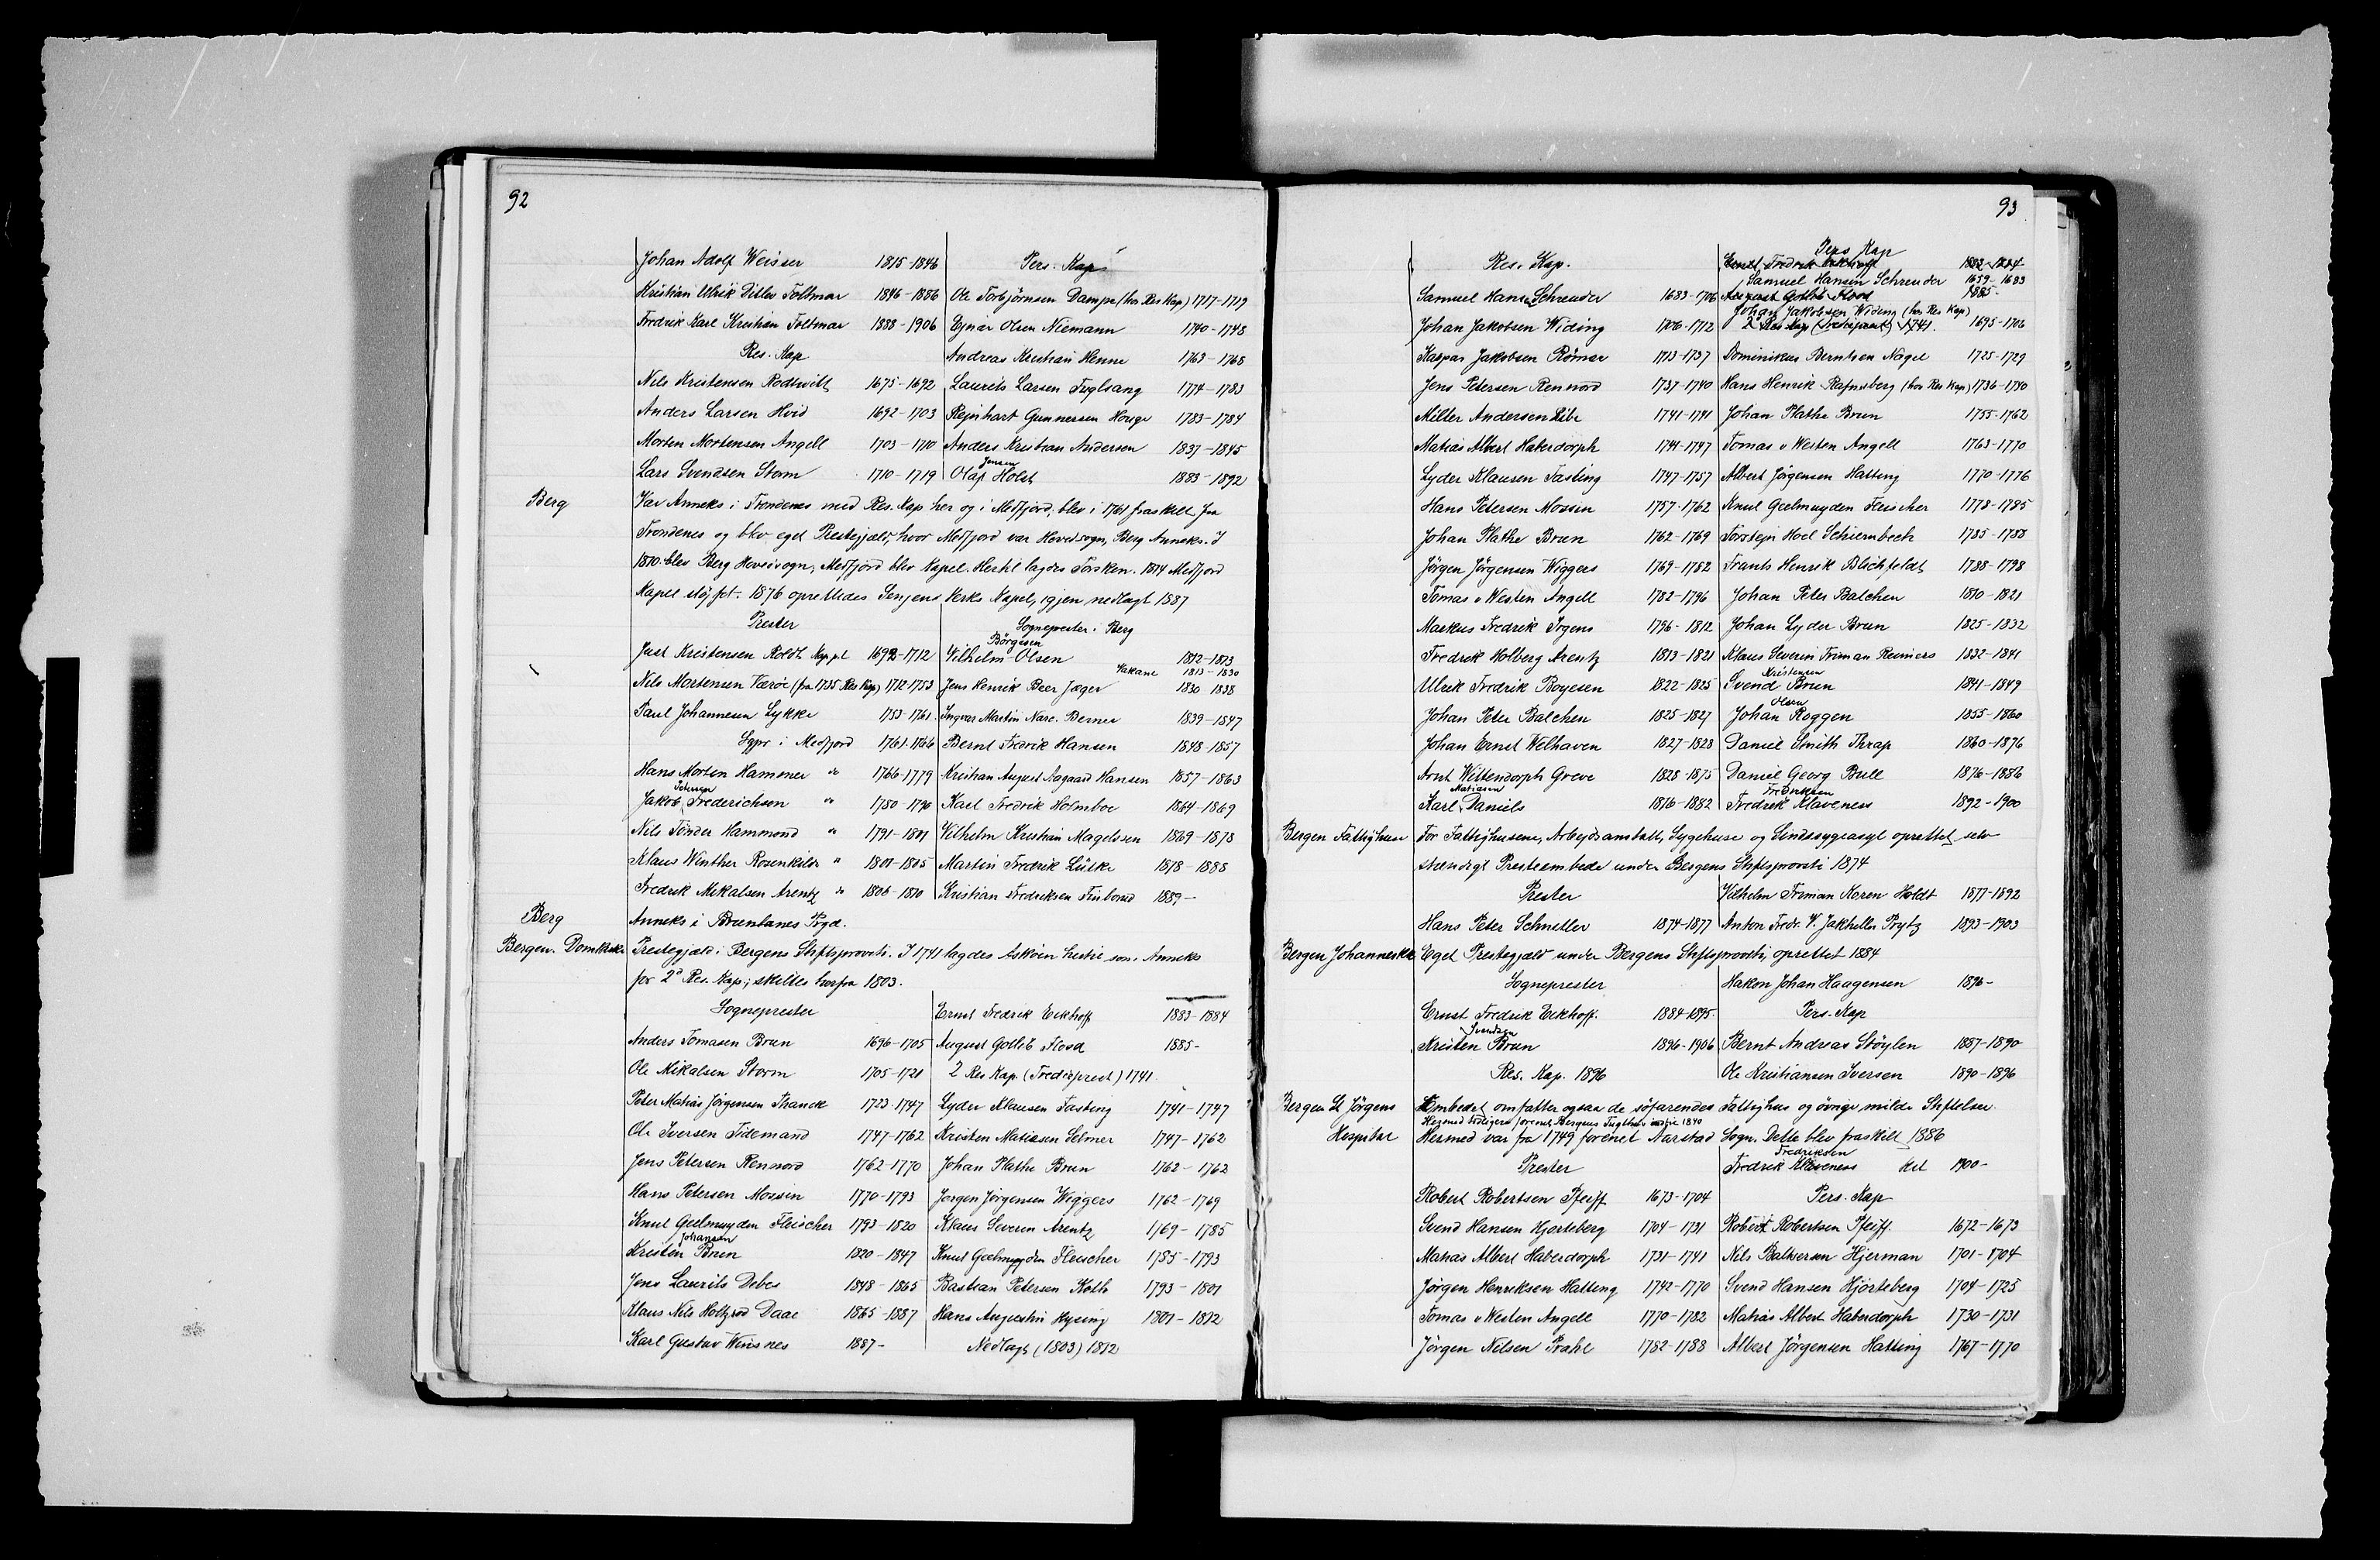 92
Johan Adolf Weisser 1815-1846
Kristian Ulrik Ditlev Foltmar 1846-1886
Fredrik Karl Kristian Foltmar 1888-1906
Res. Kap
Nils Kristensen Rodtwitt 1675-1692
Anders Larsen Hvid 1692-1703
Morten Mortensen Angell 1703-1710
Lars Svendsen Storm 1710-1719
Pers. Kap
Ole Torbjörnsen Dampe (tos Res Kap) 1717-1719
Ejnar Olsen Niemann 1740-1748
Andreas Kristian Henne 1763-1768
Laurits Larsen Fuglsang 1774-1783
Rejnhart Gunnersen Houge 1783-1784
Anders Kristian Andersen 1837-1845
Jensen
Olaf Holst 1883-1892
Berg
Var Anneks i Trondenes med Res. Kap her og i Medfjord; blev i 1761 fraskilt fra
Trondenes og blev eget Prestegjæld, hvor Medfjord var Hovedsogn, Berg Anneks. I
1810 blev Berg Hovedsogn, Medfjord blev Kapel. Hertil lagdes Torsken. 1814 Medfjord
Kapel slöjfet. 1876 oprettedes Senjens Verks Kapel, igjen nedlagt 1887
Prester
Just Kristensen Roldt Kappl 1692-1712
Nils Mortensen Væröe (fra 1735 Res Kap) 1712-1753
Paul Johannesen Lykke 1753-1761
Sgpr i Medfjord 1761-1766
Hans Morten Hammer " 1766-1779
Petersen
Jakob Frederichsen " 1780-1790
Nils Tönder Hammond " 1791-1801
Klaus Winther Rosenkilde " 1801-1805
Fredrik Mikalsen Arentz " 1806-1810
Sogneprester i Berg
Börgesen
Vilhelm Olsen 1812-1813
Vakane 1813-1830
Jens Henrik Beer Jæger 1830 1838
Ingvar Martin Narc. Berner 1839-1847
Bernt Fredrik Hansen 1848-1857
Kristian August Aagaard Hansen 1857-1863
Karl Fredrik Holmboe 1864-1869
Vilhelm Kristian Magelssen 1869-1878
Martin Fredrik Lütke 1878-1888
Kristian Fredriksen Finborud 1889-
Berg
Anneks i Brunlanes Pgd.
Bergen. Domkirke
Prestegjæld i Bergens Stiftsprovsti. I 1741 lagdes Asköen hertil som Anneks
for 2d Res. Kap; skiltes herfra 1803.
Sogneprester
Anders Tomasen Brun 1696-1705
Ole Mikalsen Storm 1705-1721
Peter Matias Jörgensen Thanck 1723-1747
Ole Iversen Tidemand 1747-1762
Jens Petersen Rennord 1762-1770
Hans Petersen Mossin 1770-1793
Knut Geelmuyden Fleischer 1793-1820
Johansen
Kristen Brun 1820-1847
Jens Laurits Debes 1848-1865
Klaus Nils Holtzrod Daae 1865-1887
Karl Gustav Weisnes 1887-
Ernst Fredrik Eckhoff 1883-1884
August Gotlib Flood 1885-
2 Res Kap. (Fredagsprest) 1741.
Lyder Klausen Fasting 1741-1747
Kristen Matiasen Selmer 1747-1762
Johan Plathe Brun 1762-1762
Jörgen Jörgensen Wiggers 1762-1769
Klaus Severin Arentz 1769-1785
Knut Geelmuyden Fleischer 1785-1793
Bastian Petersen Koth 1793-1801
Hans Augustin Hysing 1801-1812
Nedlagt (1803) 1812
93
Res. Kap.
Samuel Hansen Schreuder 1683-1706
Johan Jakobsen Widing 1706-1712
Kaspar Jakobsen Römer 1713-1737
Jens Petersen Rennord 1737-1740
Milter Andersen Libr 1741-1741
Matias Albert Haberdorph 1741-1747
Lyder Klausen Fasting 1747-1757
Hans Petersen Mossin 1757-1762
Johan Plathe Brun 1762-1769
Jörgen Jörgensen Wiggers 1769-1782
Tomas v Westen Angell 1782-1796
Markus Fredrik Irgens 1796-1812
Fredrik Holberg Arentz 1813-1821
Ulrik Fredrik Boyesen 1822-1825
Johan Peter Balchen 1825-1827
Johan Ernst Welhaven 1827-1828
Arnt Wittendorph Greve 1828-1875
Matiasen
Karl Daniels 1876-1882
Pers Kap
Ernst Fredrik Eckhoff 1883-1884
Samuel Hansen Schreuder 1659-1683
August Gotlib Flood 1885-
Johan Jakobsen Widing (tos Res Kap)
2 Res Kap (Fredagsprest) 1741. 1695-1706
Dominikus Berntsen Nagel 1725-1729
Hans Henrik Rafnsberg (tos Res Kap) 1736-1740
Johan Plathe Brun 1755-1762
Tomas v Westen Angell 1763-1770
Albert Jörgensen Hatting 1770-1776
Knut Geelmuyden Fleischer 1778-1785
Torstejn Hoel Schiernbech 1785-1788
Frants Henrik Blichfeldt 1788-1798
Johan Peter Balchen 1810-1821
Johan Lyder Brun 1825-1832
Klaus Severin Friman Reimers 1832-1841
Kristensen
Svend Brun 1841-1849
Olsen
Johan Roggen 1855-1860
Daniel Smith Thrap 1860-1876
Daniel Georg Bull 1876-1886
Fredriksen
Fredrik Klaveness 1892-1900
Bergen Fattighuse
For Fattighusene, Arbejdsanstalt, Sygehuse og Sindssygeasyl oprettet selv
stændigt Presteembede under Bergens Stiftsprovsti 1874
Prester
Hans Peter Schnitler 1874-1877
Vilhelm Friman Koren Holdt 1877-1892
Anton Fredr. V. Jakhelln Prytz 1893-1903
Bergen Johanneskke
Eget Prestegjæld under Bergens Stiftsprovsti, oprettet 1884
Sogneprester
Ernst Fredrik Eckhoff. 1884-1895.
Svendsen
Kristen Brun 1896-1906
Res. Kap. 1896
Hakon Johan Haagensen 1896-
Pers. Kap
Bernt Andreas Stöylen 1887-1890
Ole Kristiansen Iversen 1890-1896
Bergen St Jörgens
Hospital
Embedet omfatter ogsaa de söfarendes Fattighus og övrige milde Stiftelser.
Hermed tidligere forenet Bergens Tugthus indtil 1840
Hermed var fra 1749 forenet Aarstad Sogn. Dette blev fraskilt 1886
Prester
Robert Robertsen Pfeiff 1673-1704
Svend Hansen Hjorteberg 1704-1731
Matias Albert Haberdorph 1731-1741
Jörgen Henriksen Hatting 1742-1770
Tomas v Westen Angell 1770-1782
Jörgen Nilsen Prahl 1782-1788
Fredriksen
Fredrik Klaveness kst 1900-
Pers. Kap
Robert Robertsen Pfeiff 1672-1673
Nils Baltsersen Hjerman 1701-1704
Svend Hansen Hjorteberg 1704-1725
Matias Albert Haberdorph 1730-1731
Albert Jörgensen Hatting 1767-1770